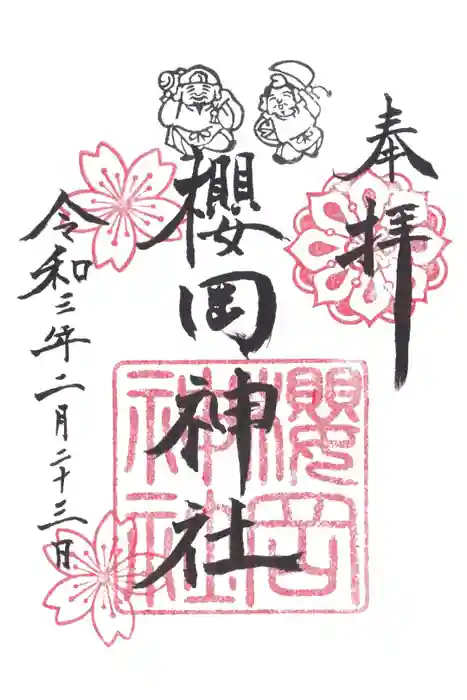 奉拝
櫻岡神社
櫻岡神社
令和三年二月二十三日